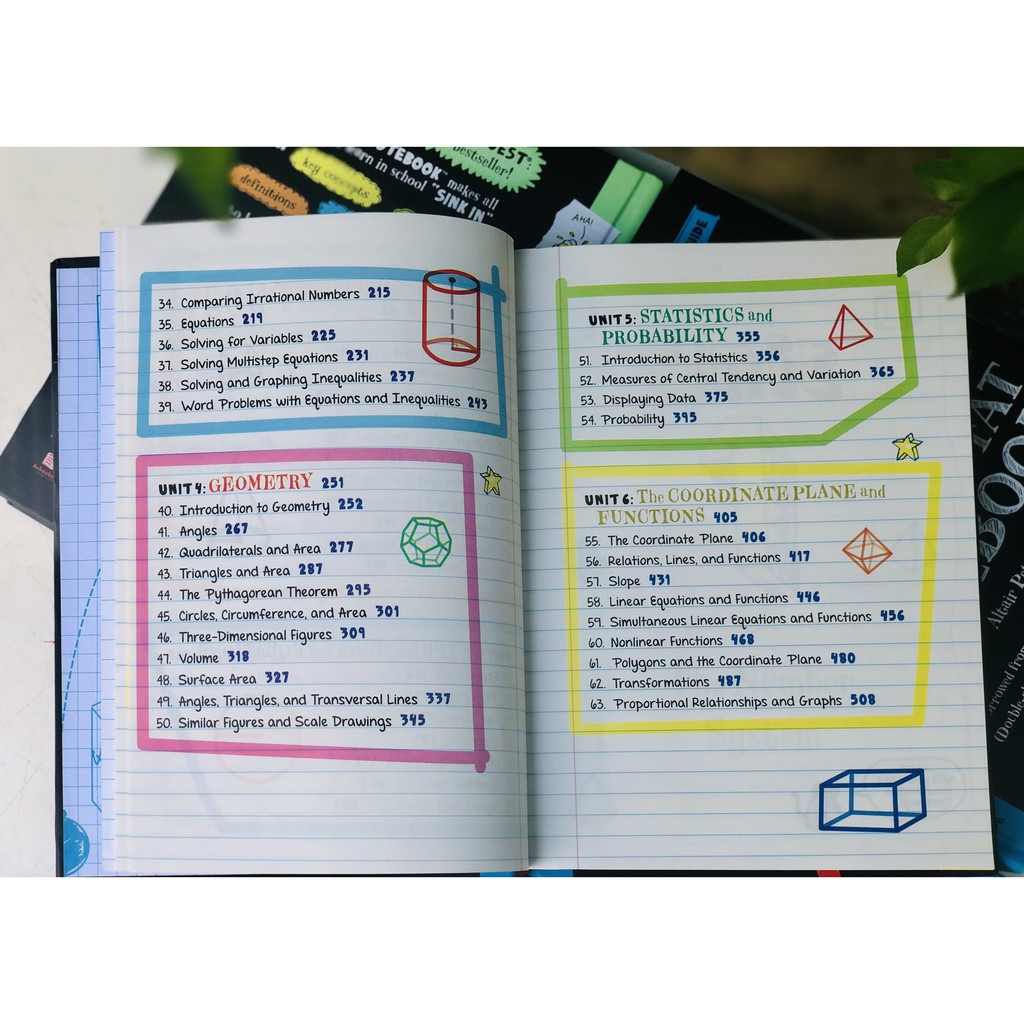 key concepts
definitions
OTEBOOK™ makes all
rn in school "SINK IN"
EST:
bestseller!
AHA!
34. Comparing Irrational Numbers 215
35. Equations 219
36. Solving for Variables 225
37. Solving Multistep Equations 231
38. Solving and Graphing Inequalities 237
39. Word Problems with Equations and Inequalities 243
UNIT 4: GEOMETRY 251
40. Introduction to Geometry 252
41. Angles 267
42. Quadrilaterals and Area 277
43. Triangles and Area 287
44. The Pythagorean Theorem 295
45. Circles, Circumference, and Area 301
46. Three-Dimensional Figures 309
47. Volume 318
48. Surface Area 327
49. Angles, Triangles, and Transversal Lines 337
50. Similar Figures and Scale Drawings 345
UNIT 5: STATISTICS and
PROBABILITY 355
51. Introduction to Statistics 356
52. Measures of Central Tendency and Variation 365
53. Displaying Data 375
54. Probability 395
UNIT 6: The COORDINATE PLANE and
FUNCTIONS 405
55. The Coordinate Plane 406
56. Relations, Lines, and Functions 417
57. Slope 431
58. Linear Equations and Functions 446
59. Simultaneous Linear Equations and Functions 456
60. Nonlinear Functions 468
61. Polygons and the Coordinate Plane 480
62. Transformations 487
63. Proportional Relationships and Graphs 508